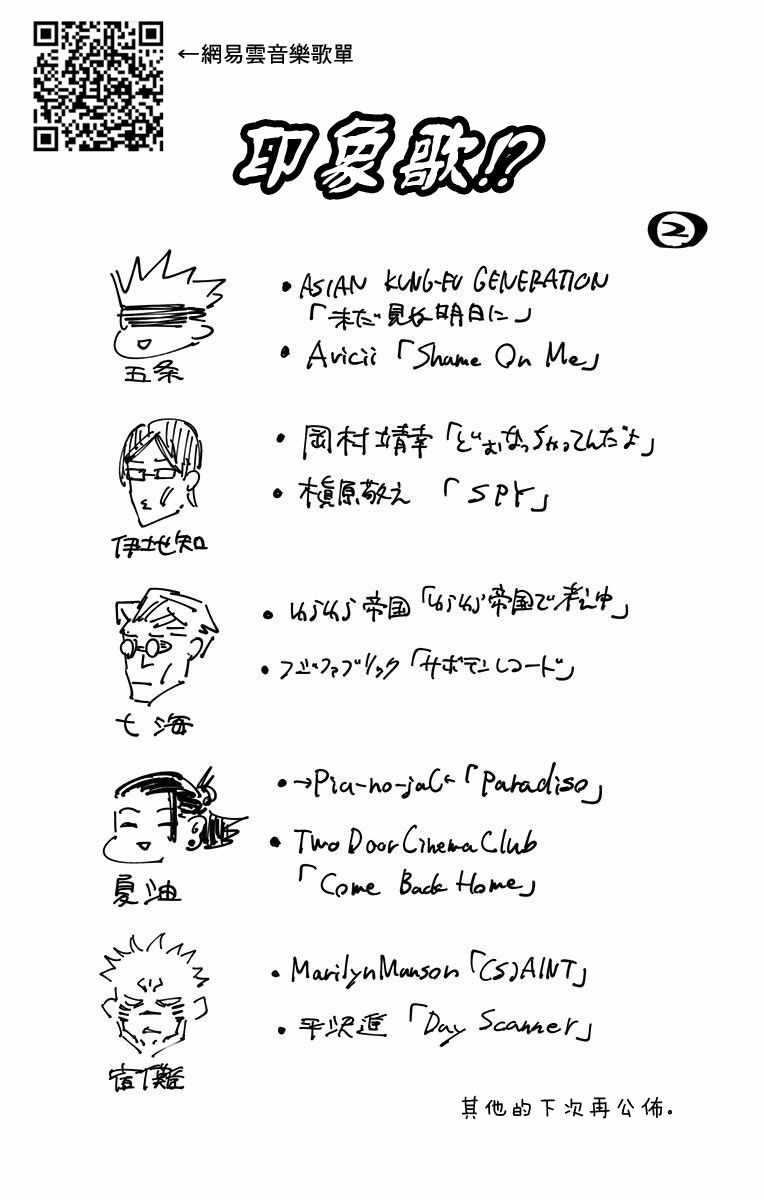 ←網易雲音樂歌單
印象歌!?
2
五条
・ASIAN KUNG-FU GENERATION
「未だ見ぬ明日に」
・Avicii「Shame On Me」
伊地知
・岡村靖幸「どぉなっちゃってんだよ」
・槇原敬之 「SPY」
七海
・ゆらゆら帝国「ゆらゆら帝国で考え中」
・フジファブリック「サボテンレコード」
夏油
・→Pia-no-jaC←「Paradiso」
・Two Door Cinema Club
「Come Back Home」
宿儺
・Marilyn Manson「(s)AINT」
・平沢進「Day Scanner」
其他的下次再公佈.